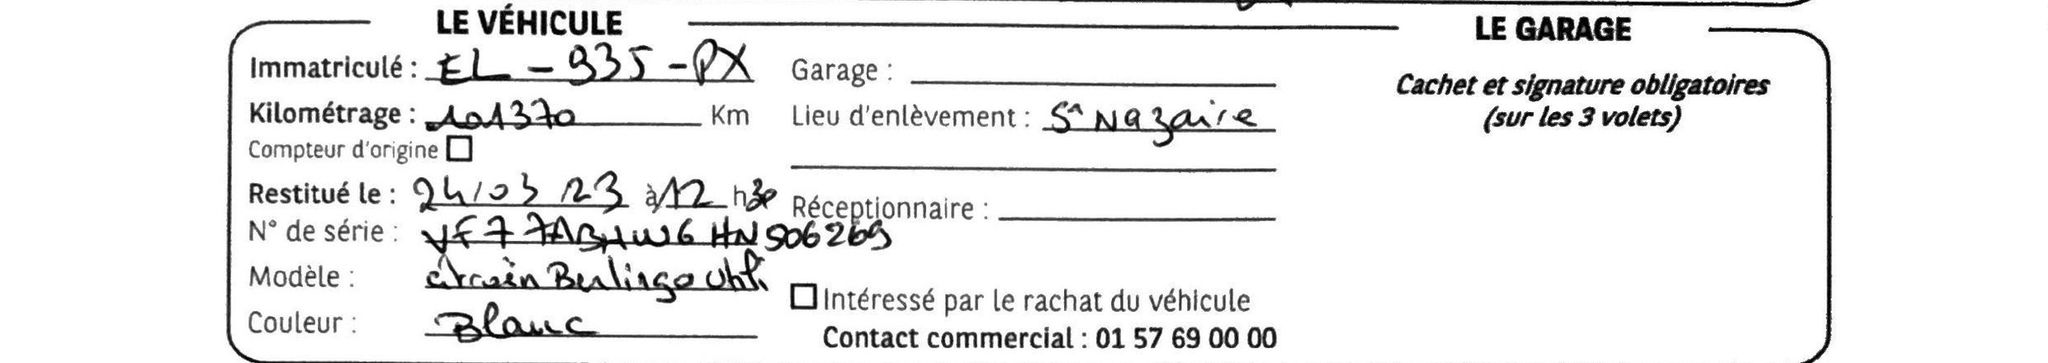 LE VÉHICULE
Immatriculé : EL - 935 - PX
Kilométrage : 101370 Km
Compteur d'origine
Restitué le : 24/03/23 à 12 h30
N° de série : VF77ABHW6HN506269
Modèle : citroën Berlingo Util.
Couleur : Blanc
Garage :
Lieu d'enlèvement : St Nazaire
Réceptionnaire :
Intéressé par le rachat du véhicule
Contact commercial : 01 57 69 00 00
LE GARAGE
Cachet et signature obligatoires
(sur les 3 volets)